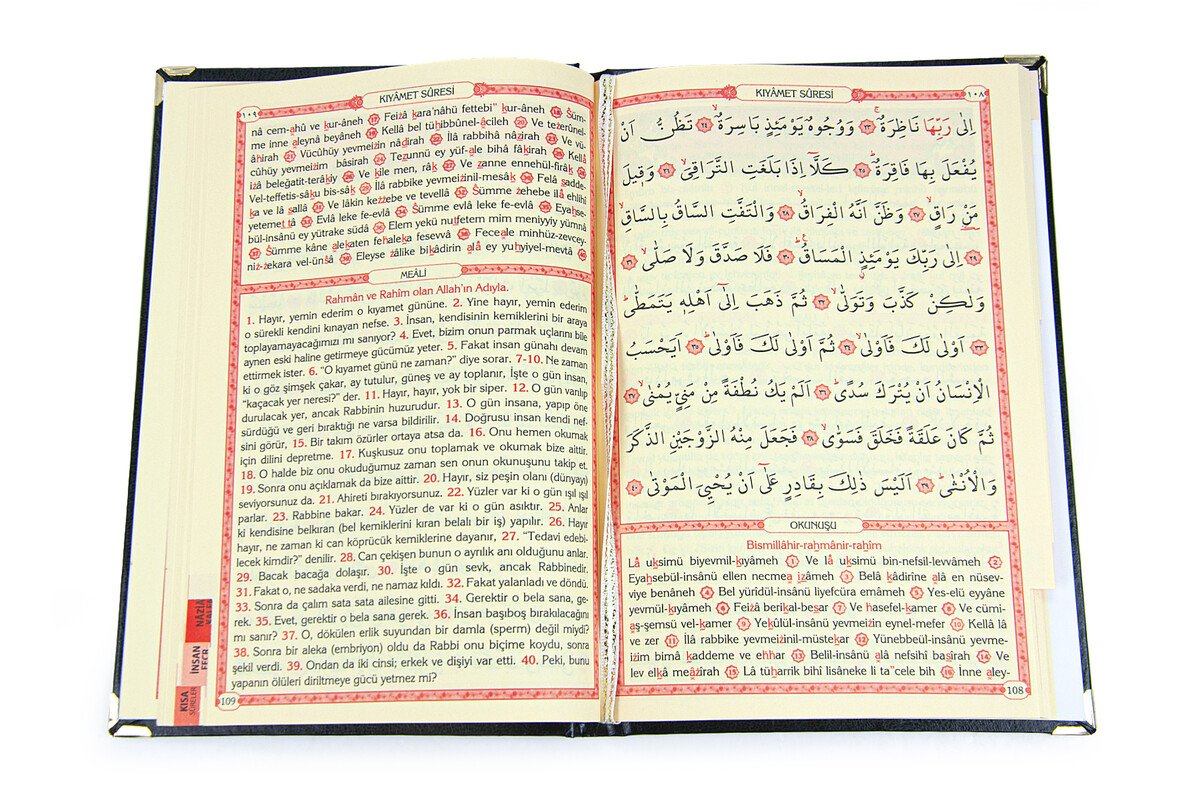 KIYÂMET SÛRESİ
١٠٨
اِلٰى رَبِّهَا نَاظِرَةٌۚ ﴿٢٣﴾ وَوُجُوهٌ يَوْمَئِذٍ بَاسِرَةٌۙ ﴿٢٤﴾ تَظُنُّ اَنْ
يُفْعَلَ بِهَا فَاقِرَةٌۜ ﴿٢٥﴾ كَلَّٓا اِذَا بَلَغَتِ التَّرَاقِيَۙ ﴿٢٦﴾ وَق۪يلَ
مَنْ رَاقٍۙ ﴿٢٧﴾ وَظَنَّ اَنَّهُ الْفِرَاقُۙ ﴿٢٨﴾ وَالْتَفَّتِ السَّاقُ بِالسَّاقِۙ
﴿٢٩﴾ اِلٰى رَبِّكَ يَوْمَئِذٍ الْمَسَاقُۜ ﴿٣٠﴾ فَلَا صَدَّقَ وَلَا صَلّٰىۙ ﴿٣١﴾
وَلٰكِنْ كَذَّبَ وَتَوَلّٰىۙ ﴿٣٢﴾ ثُمَّ ذَهَبَ اِلٰٓى اَهْلِه۪ يَتَمَطّٰىۜ
﴿٣٣﴾ اَوْلٰى لَكَ فَاَوْلٰىۙ ﴿٣٤﴾ ثُمَّ اَوْلٰى لَكَ فَاَوْلٰىۜ ﴿٣٥﴾ اَيَحْسَبُ
الْاِنْسَانُ اَنْ يُتْرَكَ سُدًىۜ ﴿٣٦﴾ اَلَمْ يَكُ نُطْفَةً مِنْ مَنِيٍّ يُمْنٰىۙ ﴿٣٧﴾
ثُمَّ كَانَ عَلَقَةً فَخَلَقَ فَسَوّٰىۙ ﴿٣٨﴾ فَجَعَلَ مِنْهُ الزَّوْجَيْنِ الذَّكَرَ
وَالْاُنْثٰىۜ ﴿٣٩﴾ اَلَيْسَ ذٰلِكَ بِقَادِرٍ عَلٰٓى اَنْ يُحْيِيَ الْمَوْتٰى ﴿٤٠﴾
OKUNUŞU
Bismillâhir-rahmânir-rahîm
Lâ uksimü biyevmil-kıyâmeh 1 Ve lâ uksimü bin-nefsil-levvâmeh 2
Eyahsebül-insânü ellen necmea ızâmeh 3 Belâ kâdirîne alâ en nüsev-
viye benâneh 4 Bel yürîdül-insânü liyefcüra emâmeh 5 Yes-elü eyyâne
yevmül-kıyâmeh 6 Feizâ berikal-besar 7 Ve hasefel-kamer 8 Ve cümi-
aş-şemsü vel-kamer 9 Yekûlül-insânü yevmeizin eynel-mefer 10 Kellâ lâ
ve zer 11 İlâ rabbike yevmeizinil-müstekar 12 Yünebbeül-insânü yevme-
izim bimâ kaddeme ve ehhar 13 Belil-insânü alâ nefsihî basîrah 14 Ve
lev elkâ meâzîrah 15 Lâ tüharrik bihî lisâneke li ta"cele bih 16 İnne aley-
108
١٠٩
KIYÂMET SÛRESİ
nâ cem-ahû ve kur-âneh 17 Feizâ kara'nâhü fettebi" kur-âneh 18 Süm-
me inne aleynâ beyâneh 19 Kellâ bel tühibbûnel-âcileh 20 Ve tezerûnel-
âhirah 21 Vücûhüy yevmeizin nâdirah 22 İlâ rabbihâ nâzirah 23 Ve vü-
cûhüy yevmeizim bâsirah 24 Tezunnü ey yüf-ale bihâ fâkirah 25 Kellâ
izâ beleğatit-terâkıy 26 Ve kîle men, râk 27 Ve zanne ennehül-firâk 28
Vel-teffetis-sâku bis-sâk 29 İlâ rabbike yevmeizinil-mesâk 30 Felâ sadde-
ka ve lâ sallâ 31 Ve lâkin kezzebe ve tevellâ 32 Sümme zehebe ilâ ehlihî
yetemettâ 33 Evlâ leke fe-evlâ 34 Sümme evlâ leke fe-evlâ 35 Eyahse-
bül-insânü ey yütrake südâ 36 Elem yekü nutfetem mim meniyyiy yümnâ
37 Sümme kâne alekaten fehaleka fesevvâ 38 Feceale minhüz-zevcey-
niz-zekara vel-ünsâ 39 Eleyse zâlike bikâdirin alâ ey yuhyiyel-mevtâ 40
MEÂLİ
Rahmân ve Rahîm olan Allah'ın Adıyla.
1. Hayır, yemin ederim o kıyamet gününe. 2. Yine hayır, yemin ederim
o sürekli kendini kınayan nefse. 3. İnsan, kendisinin kemiklerini bir araya
toplayamayacağımızı mı sanıyor? 4. Evet, bizim onun parmak uçlarını bile
aynen eski haline getirmeye gücümüz yeter. 5. Fakat insan günahı devam
ettirmek ister. 6. “O kıyamet günü ne zaman?” diye sorar. 7-10. Ne zaman
ki o göz şimşek çakar, ay tutulur, güneş ve ay toplanır, İşte o gün insan,
“kaçacak yer neresi?” der. 11. Hayır, hayır, yok bir siper. 12. O gün varılıp
durulacak yer, ancak Rabbinin huzurudur. 13. O gün insana, yapıp öne
sürdüğü ve geri bıraktığı ne varsa bildirilir. 14. Doğrusu insan kendi nef-
sini görür, 15. Bir takım özürler ortaya atsa da. 16. Onu hemen okumak
için dilini depretme. 17. Kuşkusuz onu toplamak ve okumak bize aittir.
18. O halde biz onu okuduğumuz zaman sen onun okunuşunu takip et.
19. Sonra onu açıklamak da bize aittir. 20. Hayır, siz peşin olanı (dünyayı)
seviyorsunuz da. 21. Ahireti bırakıyorsunuz. 22. Yüzler var ki o gün ışıl ışıl
parlar. 23. Rabbine bakar. 24. Yüzler de var ki o gün asıktır. 25. Anlar
ki kendisine belkıran (bel kemiklerini kıran belalı bir iş) yapılır. 26. Hayır
hayır, ne zaman ki can köprücük kemiklerine dayanır, 27. “Tedavi edebi-
lecek kimdir?” denilir. 28. Can çekişen bunun o ayrılık anı olduğunu anlar.
29. Bacak bacağa dolaşır. 30. İşte o gün sevk, ancak Rabbinedir.
31. Fakat o, ne sadaka verdi, ne namaz kıldı. 32. Fakat yalanladı ve döndü.
33. Sonra da çalım sata sata ailesine gitti. 34. Gerektir o bela sana, ge-
rek. 35. Evet, gerektir o bela sana gerek. 36. İnsan başıboş bırakılacağını
mı sanır? 37. O, dökülen erlik suyundan bir damla (sperm) değil miydi?
38. Sonra bir aleka (embriyon) oldu da Rabbi onu biçime koydu, sonra
şekil verdi. 39. Ondan da iki cinsi; erkek ve dişiyi var etti. 40. Peki, bunu
yapanın ölüleri diriltmeye gücü yetmez mi?
109
NÂZİÂT
İNSAN
FECR
KISA
SÛRELER